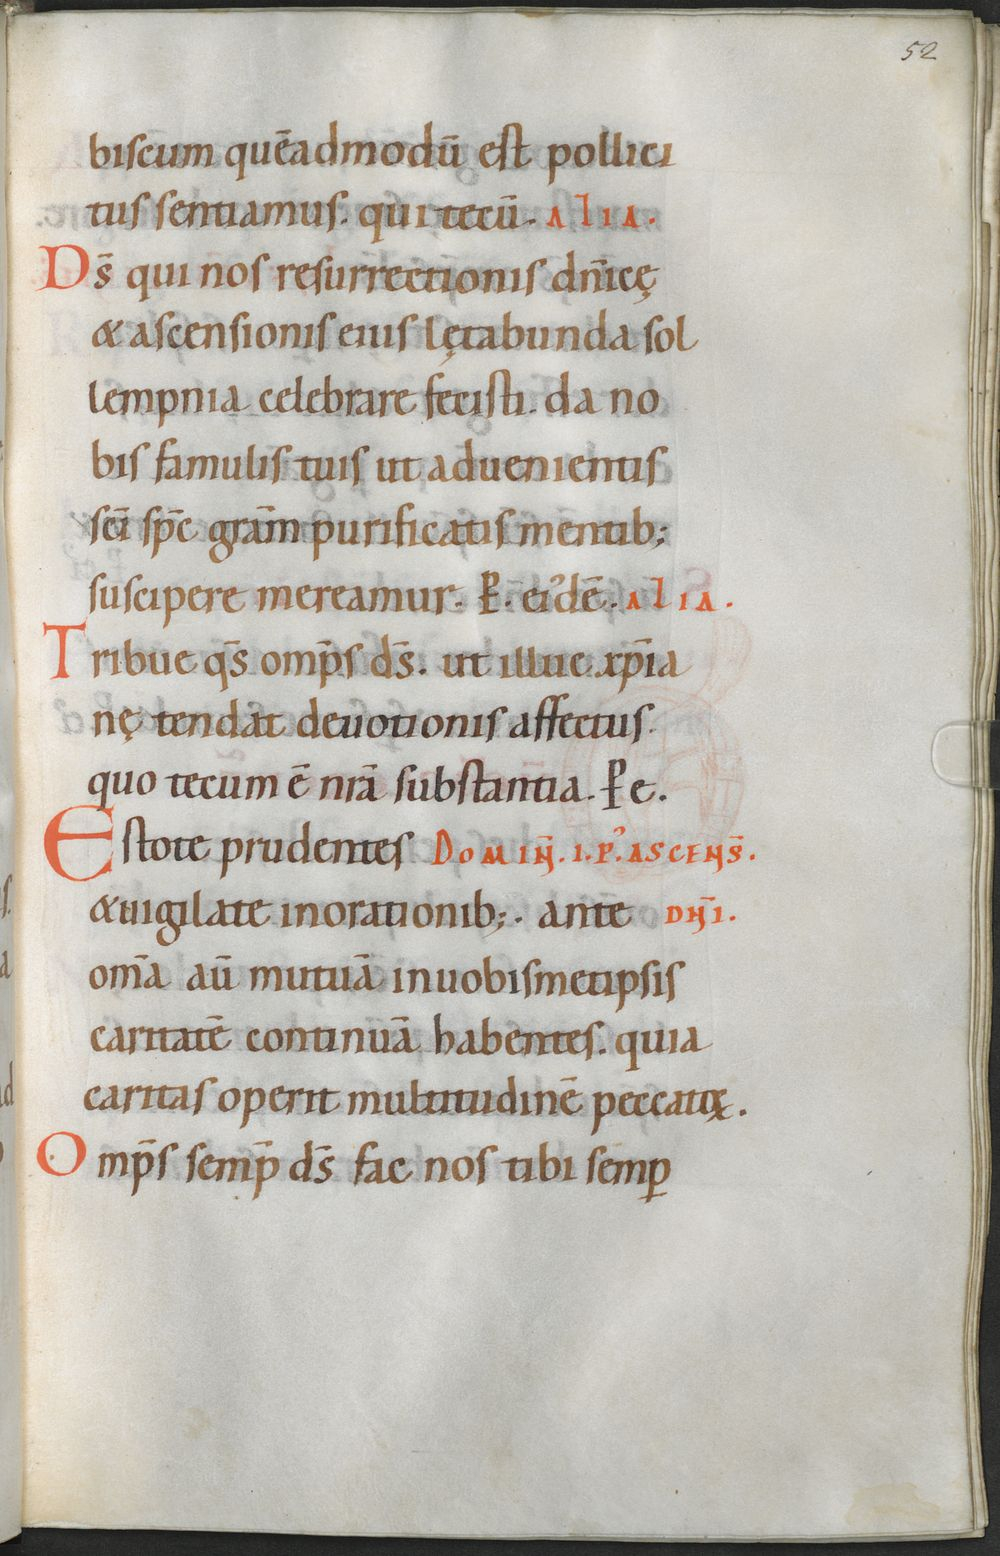 52
biscum quēadmodū est pollici
tus sentiamus. qui tecū. ALIA.
Ds̄ qui nos resurrectionis dn̄icę
& ascensionis eius lętabunda sol
lempnia celebrare fecisti. da no
bis famulis tuis ut aduenientis
sc̄i sp̄c grām purificatis mentib;
suscipere mereamur. P. ei'dē. ALIA.
Tribue qs̄ omp̄s ds̄. ut illuc xp̄ia
nę tendat deuotionis affectus.
quo tecum ē nrā substantia. P e.
Estote prudentes DOMIN̄. I. P' ASCENS̄.
& uigilate in orationib;. ante DN̄I.
om̄a aū mutuā in uobismetipsis
caritatē continuā habentes. quia
caritas operit multitudinē peccatoꝝ.
Omp̄s semp̄ ds̄ fac nos tibi semꝑ